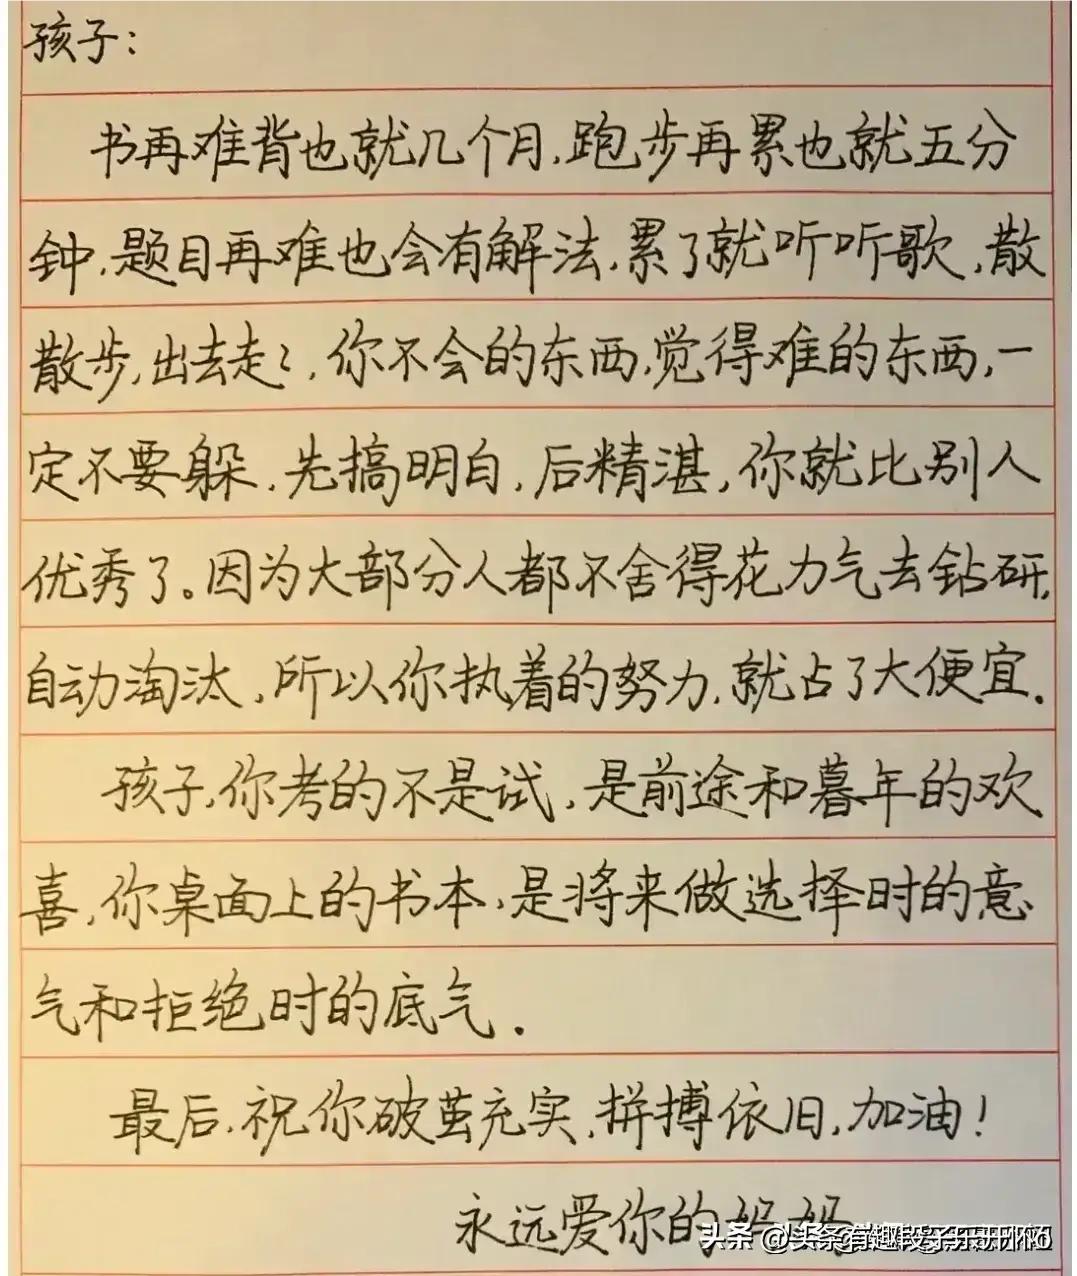 孩子:
书再难背也就几个月,跑步再累也就五分
钟,题目再难也会有解法,累了就听听歌,散
散步,出去走々,你不会的东西,觉得难的东西,一
定不要躲,先搞明白,后精湛,你就比别人
优秀了。因为大部分人都不舍得花力气去钻研,
自动淘汰,所以你执着的努力,就占了大便宜.
孩子,你考的不是试,是前途和暮年的欢
喜,你桌面上的书本,是将来做选择时的意
气和拒绝时的底气.
最后,祝你破茧充实,拼搏依旧,加油!
永远爱你的妈妈
头条 @头条有趣段子